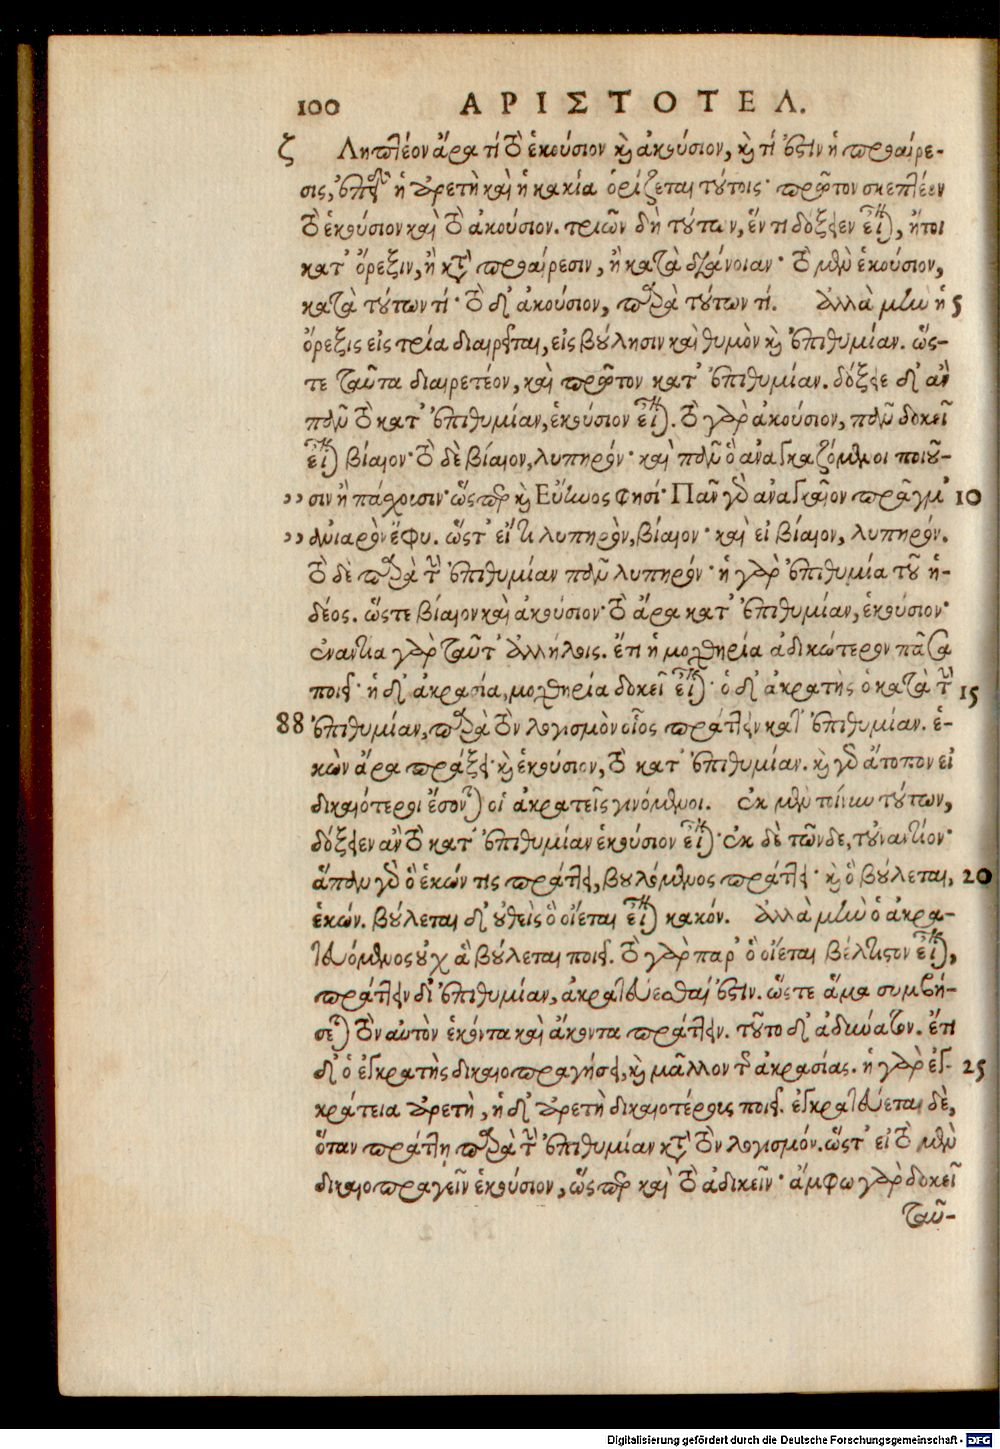 100 ΑΡΙΣΤΟΤΕΛ.
ζ Ληπτέον ἄρα τί τὸ ἑκούσιον καὶ ἀκούσιον, καὶ τί ἐστὶν ἡ προαίρε-
σις, ἐπεὶ ἡ ἀρετὴ καὶ ἡ κακία ὁρίζεται τούτοις· πρῶτον σκεπτέον
τὸ ἑκούσιον καὶ τὸ ἀκούσιον. τριῶν δὴ τούτων, ἕν τι δόξειεν εἶναι, ἤτοι
κατ' ὄρεξιν, ἢ κατὰ προαίρεσιν, ἢ κατὰ διάνοιαν· τὸ μὲν ἑκούσιον,
κατὰ τούτων τί· τὸ δ' ἀκούσιον, παρὰ τούτων τί. ἀλλὰ μὴν ἡ 5
ὄρεξις εἰς τρία διαιρεῖται, εἰς βούλησιν καὶ θυμὸν καὶ ἐπιθυμίαν. ὥς-
τε ταῦτα διαιρετέον, καὶ πρῶτον κατ' ἐπιθυμίαν. δόξειε δ' ἂν
πᾶν τὸ κατ' ἐπιθυμίαν, ἑκούσιον εἶναι. τὸ γὰρ ἀκούσιον, πᾶν δοκεῖ
εἶναι βίαιον· τὸ δὲ βίαιον, λυπηρόν· καὶ πᾶν ὃ ἀναγκαζόμενοι ποιοῦ-
,, σιν ἢ πάσχουσιν· ὥσπερ καὶ Εὔηνος φησί· Πᾶν γὰρ ἀναγκαῖον πρᾶγμ' 10
,, ἀνιαρὸν ἔφυ. ὥστ' εἴ τι λυπηρὸν, βίαιον· καὶ εἰ βίαιον, λυπηρόν.
τὸ δὲ παρὰ τὴν ἐπιθυμίαν πᾶν λυπηρόν· ἡ γὰρ ἐπιθυμία τοῦ ἡ-
δέος. ὥστε βίαιον καὶ ἀκούσιον· τὸ ἄρα κατ' ἐπιθυμίαν, ἑκούσιον·
ἐναντία γὰρ ταῦτ' ἀλλήλοις. ἔτι ἡ μοχθηρία ἀδικώτερον πᾶσα
ποιεῖ· ἡ δ' ἀκρασία, μοχθηρία δοκεῖ εἶναι· ὁ δ' ἀκρατὴς ὁ κατὰ τὴν 15
88 ἐπιθυμίαν, παρὰ τὸν λογισμὸν οἷος πράττειν κατ' ἐπιθυμίαν. ἑ-
κὼν ἄρα πράξει· καὶ ἑκούσιον, τὸ κατ' ἐπιθυμίαν. καὶ γὰρ ἄτοπον εἰ
δικαιότεροι ἔσονται οἱ ἀκρατεῖς γινόμενοι. ἐκ μὲν τοίνυν τούτων,
δόξειεν ἂν τὸ κατ' ἐπιθυμίαν ἑκούσιον εἶναι· ἐκ δὲ τῶνδε, τοὐναντίον·
ἅπαν γὰρ ὃ ἑκών τις πράττει, βουλόμενος πράττει· καὶ ὃ βούλεται, 20
ἑκών. βούλεται δ' οὐθεὶς ὃ οἴεται εἶναι κακόν. ἀλλὰ μὴν ὁ ἀκρα-
τευόμενος οὐχ ἃ βούλεται ποιεῖ. τὸ γὰρ παρ' ὃ οἴεται βέλτιστον εἶναι,
πράττειν δι' ἐπιθυμίαν, ἀκρατεύεσθαί ἐστιν. ὥστε ἅμα συμβή-
σεται τὸν αὐτὸν ἑκόντα καὶ ἄκοντα πράττειν. τοῦτο δ' ἀδύνατον. ἔτι
δ' ὁ ἐγκρατὴς δικαιοπραγήσει, καὶ μᾶλλον τῆς ἀκρασίας. ἡ γὰρ ἐγ- 25
κράτεια ἀρετὴ, ἡ δ' ἀρετὴ δικαιοτέρους ποιεῖ. ἐγκρατεύεται δὲ,
ὅταν πράττῃ παρὰ τὴν ἐπιθυμίαν κατὰ τὸν λογισμόν. ὥστ' εἰ τὸ μὲν
δικαιοπραγεῖν ἑκούσιον, ὥσπερ καὶ τὸ ἀδικεῖν· ἄμφω γὰρ δοκεῖ
ταῦ-
Digitalisierung gefördert durch die Deutsche Forschungsgemeinschaft - DFG